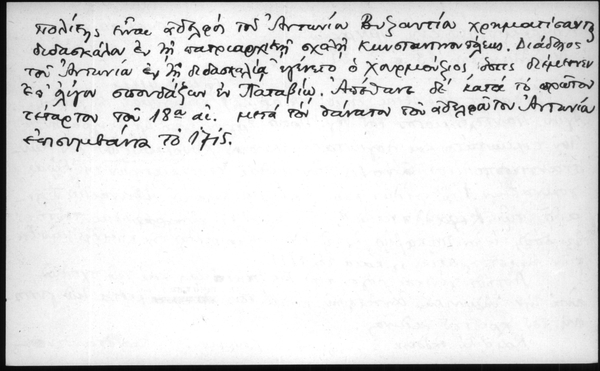 πολίτης εἶναι ἀδελφός τοῦ Ἀντωνία Βυζαντία χρηματίσαντος
διδασκάλου ἐν τῇ πατριαρχικῇ σχολῇ Κωνσταντινουπόλεως. Διάδοχος
τοῦ Ἀντωνία ἐν τῇ διδασκαλίᾳ ἐγένετο ὁ Χουρμούζιος ὅστις διέμεινεν
ἐπ' ὀλίγον σπουδάζων ἐν Παταβίῳ. Ἀπέθανε δέ κατά τό πρῶτον
τέταρτον τοῦ 18ου αἰ. μετά τόν θάνατον τοῦ ἀδελφοῦ του Ἀντωνία
ἐπισυμβάντα τό